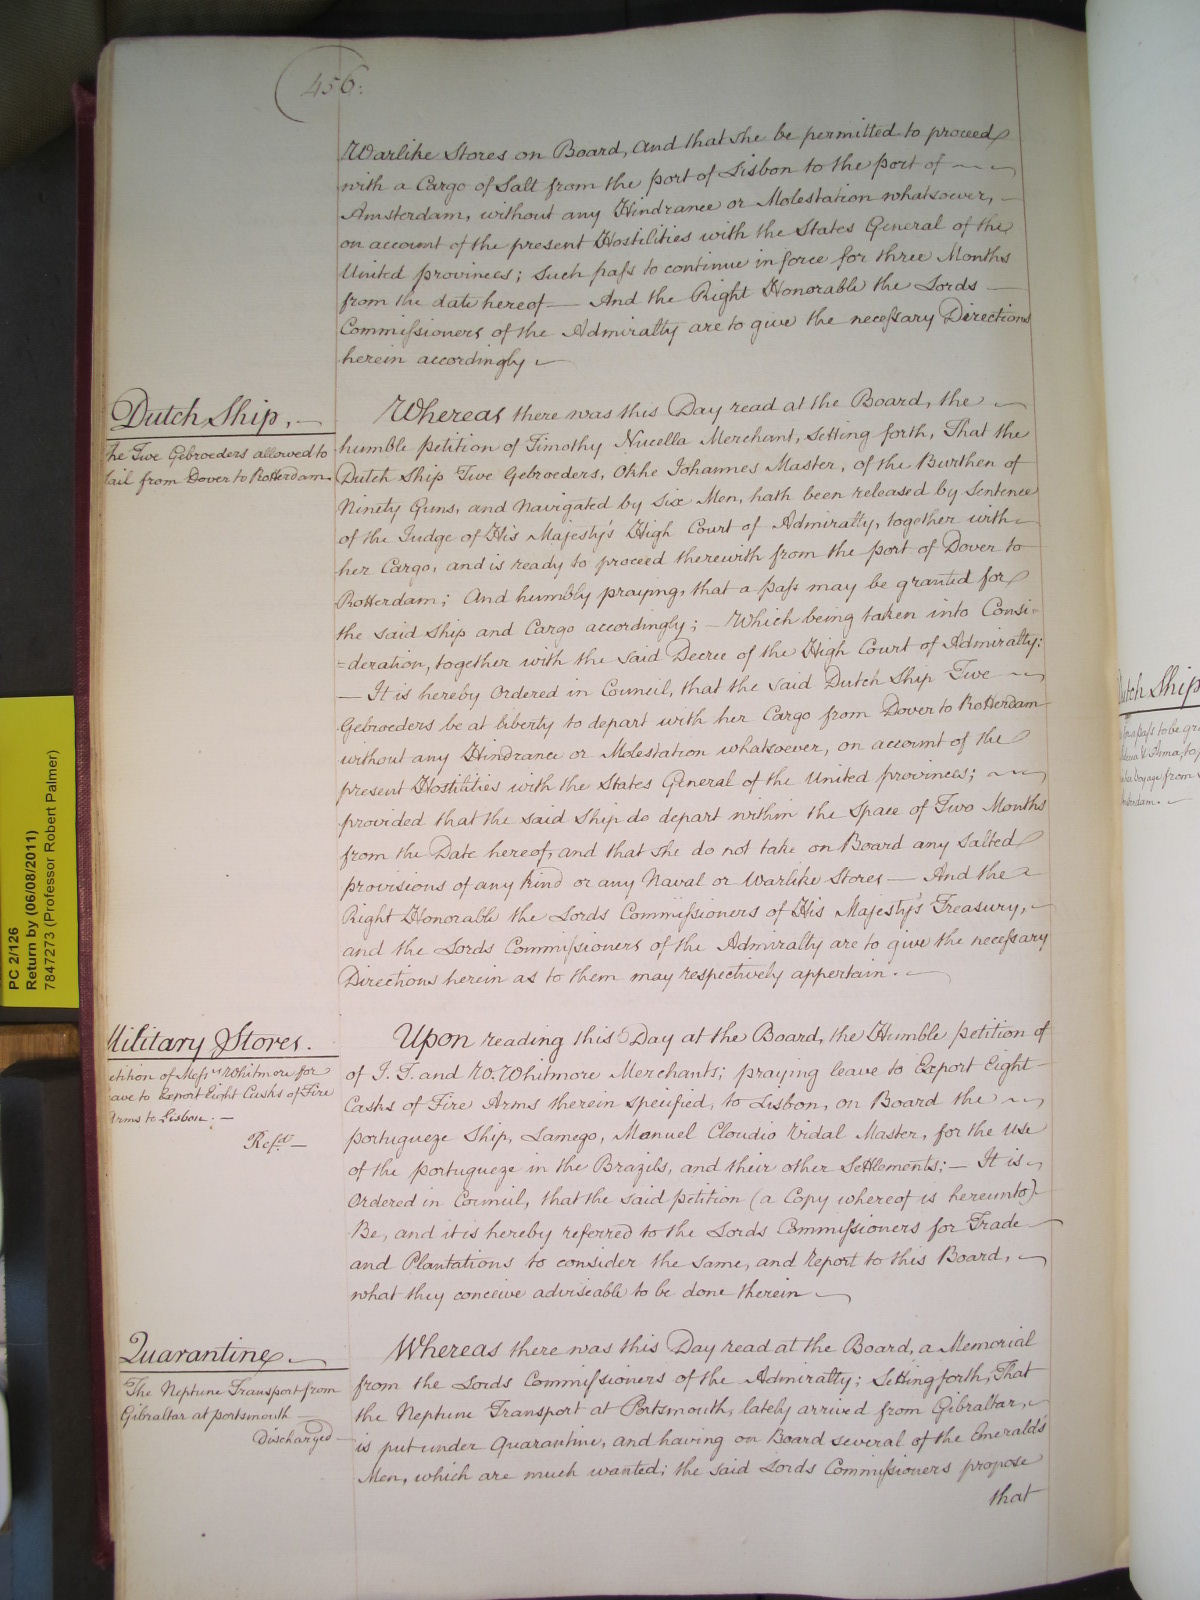 456.
Warlike Stores on Board, And that she be permitted to proceed
with a Cargo of Salt from the port of Lisbon to the port of
Amsterdam, without any Hindrance or Molestation whatsoever,
on account of the present Hostilities with the States General of the
United provinces; Such pass to continue in force for three Months
from the date hereof — And the Right Honorable the Lords —
Commissioners of the Admiralty are to give the necessary Directions
herein accordingly —
Dutch Ship. —
The Twe Gebroeders allowed to
Sail from Dover to Rotterdam
Whereas there was this Day read at the Board, the
humble petition of Timothy Nucella Merchant, Setting forth, That the
Dutch Ship Twe Gebroeders, Okke Johannes Master, of the Burthen of
Ninety Guns, and Navigated by Six Men, hath been released by Sentence
of the Judge of His Majesty's High Court of Admiralty, together with
her Cargo, and is ready to proceed therewith from the port of Dover to
Rotterdam; And humbly praying, that a pass may be granted for
the said Ship and Cargo accordingly; — Which being taken into Consi-
=deration, together with the said Decree of the High Court of Admiralty:
— It is hereby Ordered in Council, that the said Dutch Ship Twe
Gebroeders be at liberty to depart with her Cargo from Dover to Rotterdam
without any Hindrance or Molestation whatsoever, on account of the
present Hostilities with the States General of the United provinces;
provided that the said Ship do depart within the Space of Two Months
from the Date hereof, and that she do not take on Board any Salted
provisions of any kind or any Naval or Warlike Stores — And the
Right Honorable the Lords Commissioners of His Majesty's Treasury,
and the Lords Commissioners of the Admiralty are to give the necessary
Directions herein as to them may respectively appertain. —
Military Stores.
etition of Mess.rs Whitmore for
ave to Export Eight Casks of Fire
Arms to Lisbon. —
Ref.d —
Upon reading this Day at the Board, the Humble petition of
of J. J. and W. Whitmore Merchants; praying leave to Export Eight
Casks of Fire Arms therein specified, to Lisbon, on Board the
portugueze Ship, Lamego, Manuel Cloudio Vidal Master, for the use
of the portugueze in the Brazils, and their other Settlements; — It is
Ordered in Council, that the said petition (a Copy whereof is hereunto)
Be, and it is hereby referred to the Lords Commissioners for Trade
and Plantations to consider the same, and Report to this Board,
what they conceive adviseable to be done therein —
Quarantine. —
The Neptune Transport from
Gibraltar at portsmouth —
Discharged —
Whereas there was this Day read at the Board, a Memorial
from the Lords Commissioners of the Admiralty; Setting forth, That
the Neptune Transport at Portsmouth, lately arrived from Gibraltar,
is put under Quarantine, and having on Board several of the Emerald's
Men, which are much wanted; the said Lords Commissioners propose
that
PC 2/126
Return by (06/08/2011)
7847273 (Professor Robert Palmer)
utch Ship